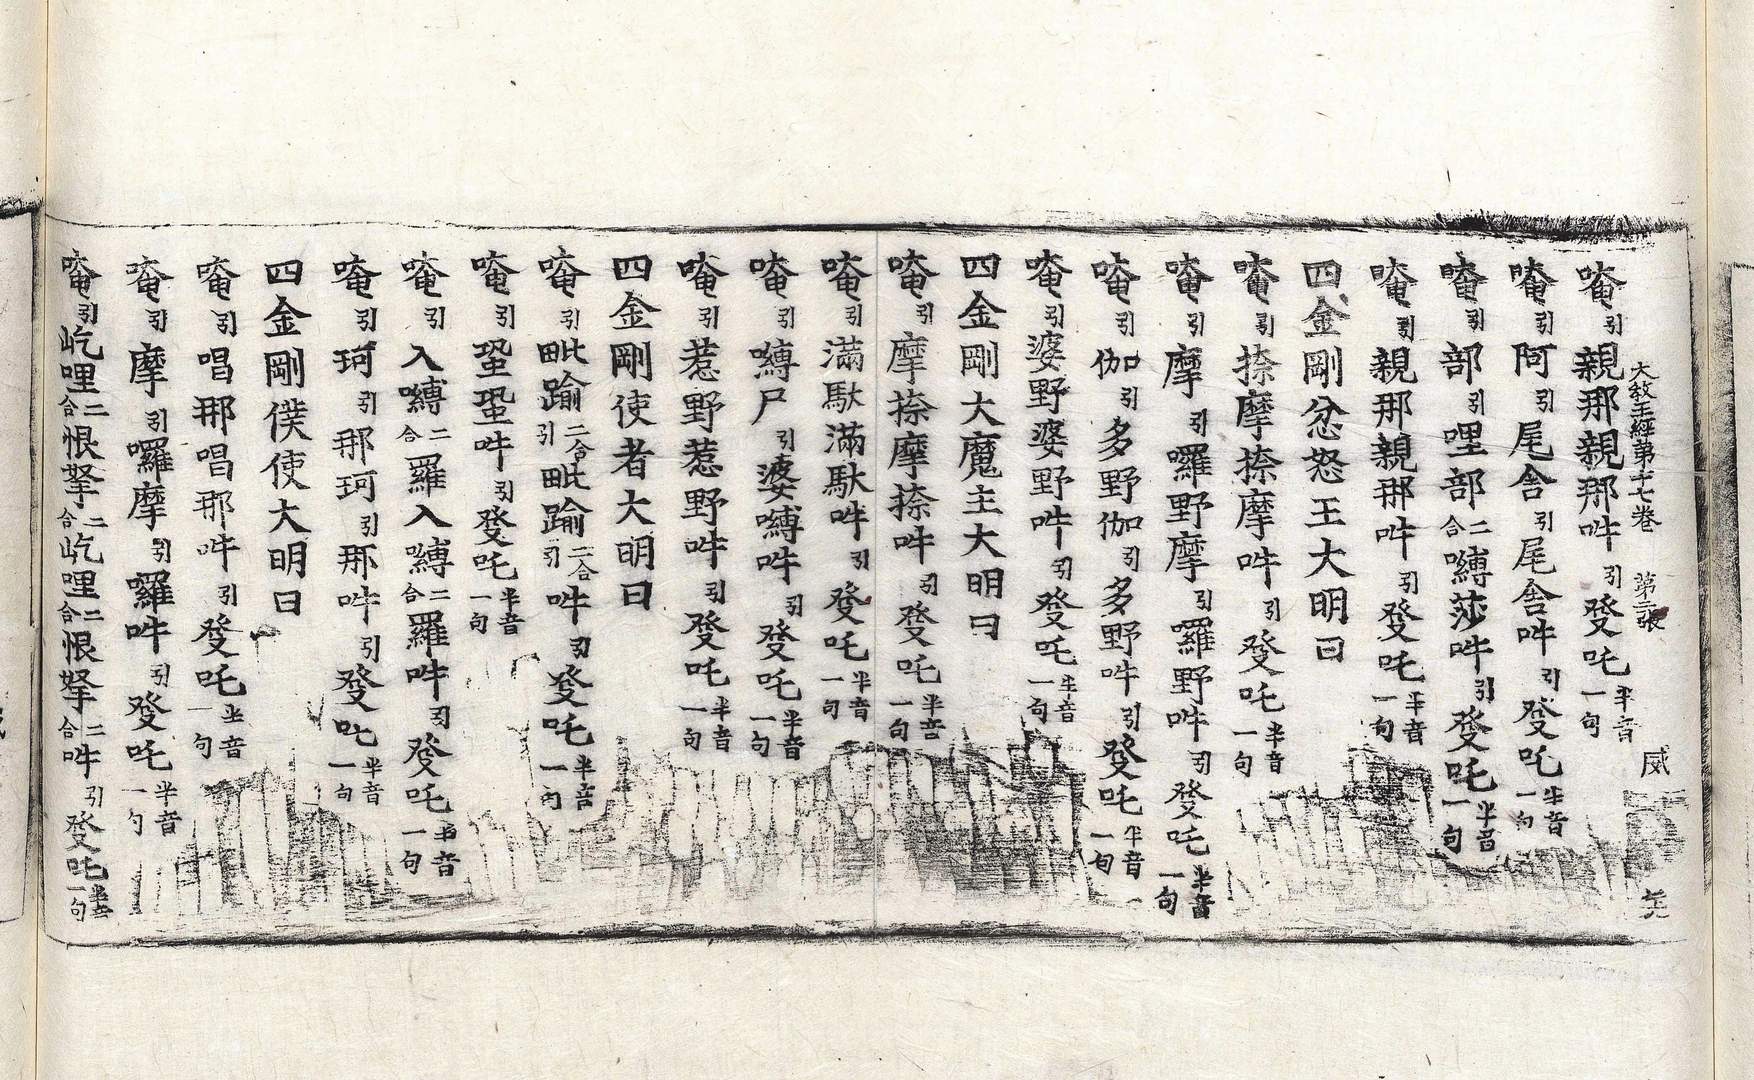 大教王經第十七卷 第三張 威
唵引親那親那吽引癹吒半音一句
唵引阿引尾舍引尾舍吽引癹吒半音一句
唵引部引哩部二合嚩莎吽引癹吒半音一句
唵引親那親那吽引癹吒半音一句
四金剛忿怒王大明曰
唵引捺摩捺摩吽引癹吒半音一句
唵引摩引囉野摩引囉野吽引癹吒半音一句
唵引伽引多野伽引多野吽引癹吒半音一句
唵引婆野婆野吽引癹吒半音一句
四金剛大魔主大明曰
唵引摩捺摩捺吽引癹吒半音一句
唵引滿馱滿馱吽引癹吒半音一句
唵引嚩尸引婆嚩吽引癹吒半音一句
唵引惹野惹野吽引癹吒半音一句
四金剛使者大明曰
唵引毗踰二合引毗踰二合引吽引癹吒半音一句
唵引蛩蛩吽引癹吒半音一句
唵引入嚩二合羅入嚩二合羅吽引癹吒半音一句
唵引珂引那珂引那吽引癹吒半音一句
四金剛僕使大明曰
唵引唱那唱那吽引癹吒半音一句
唵引摩引囉摩引囉吽引癹吒半音一句
唵引屹哩二合恨拏二合屹哩二合恨拏二合吽引癹吒半音一句